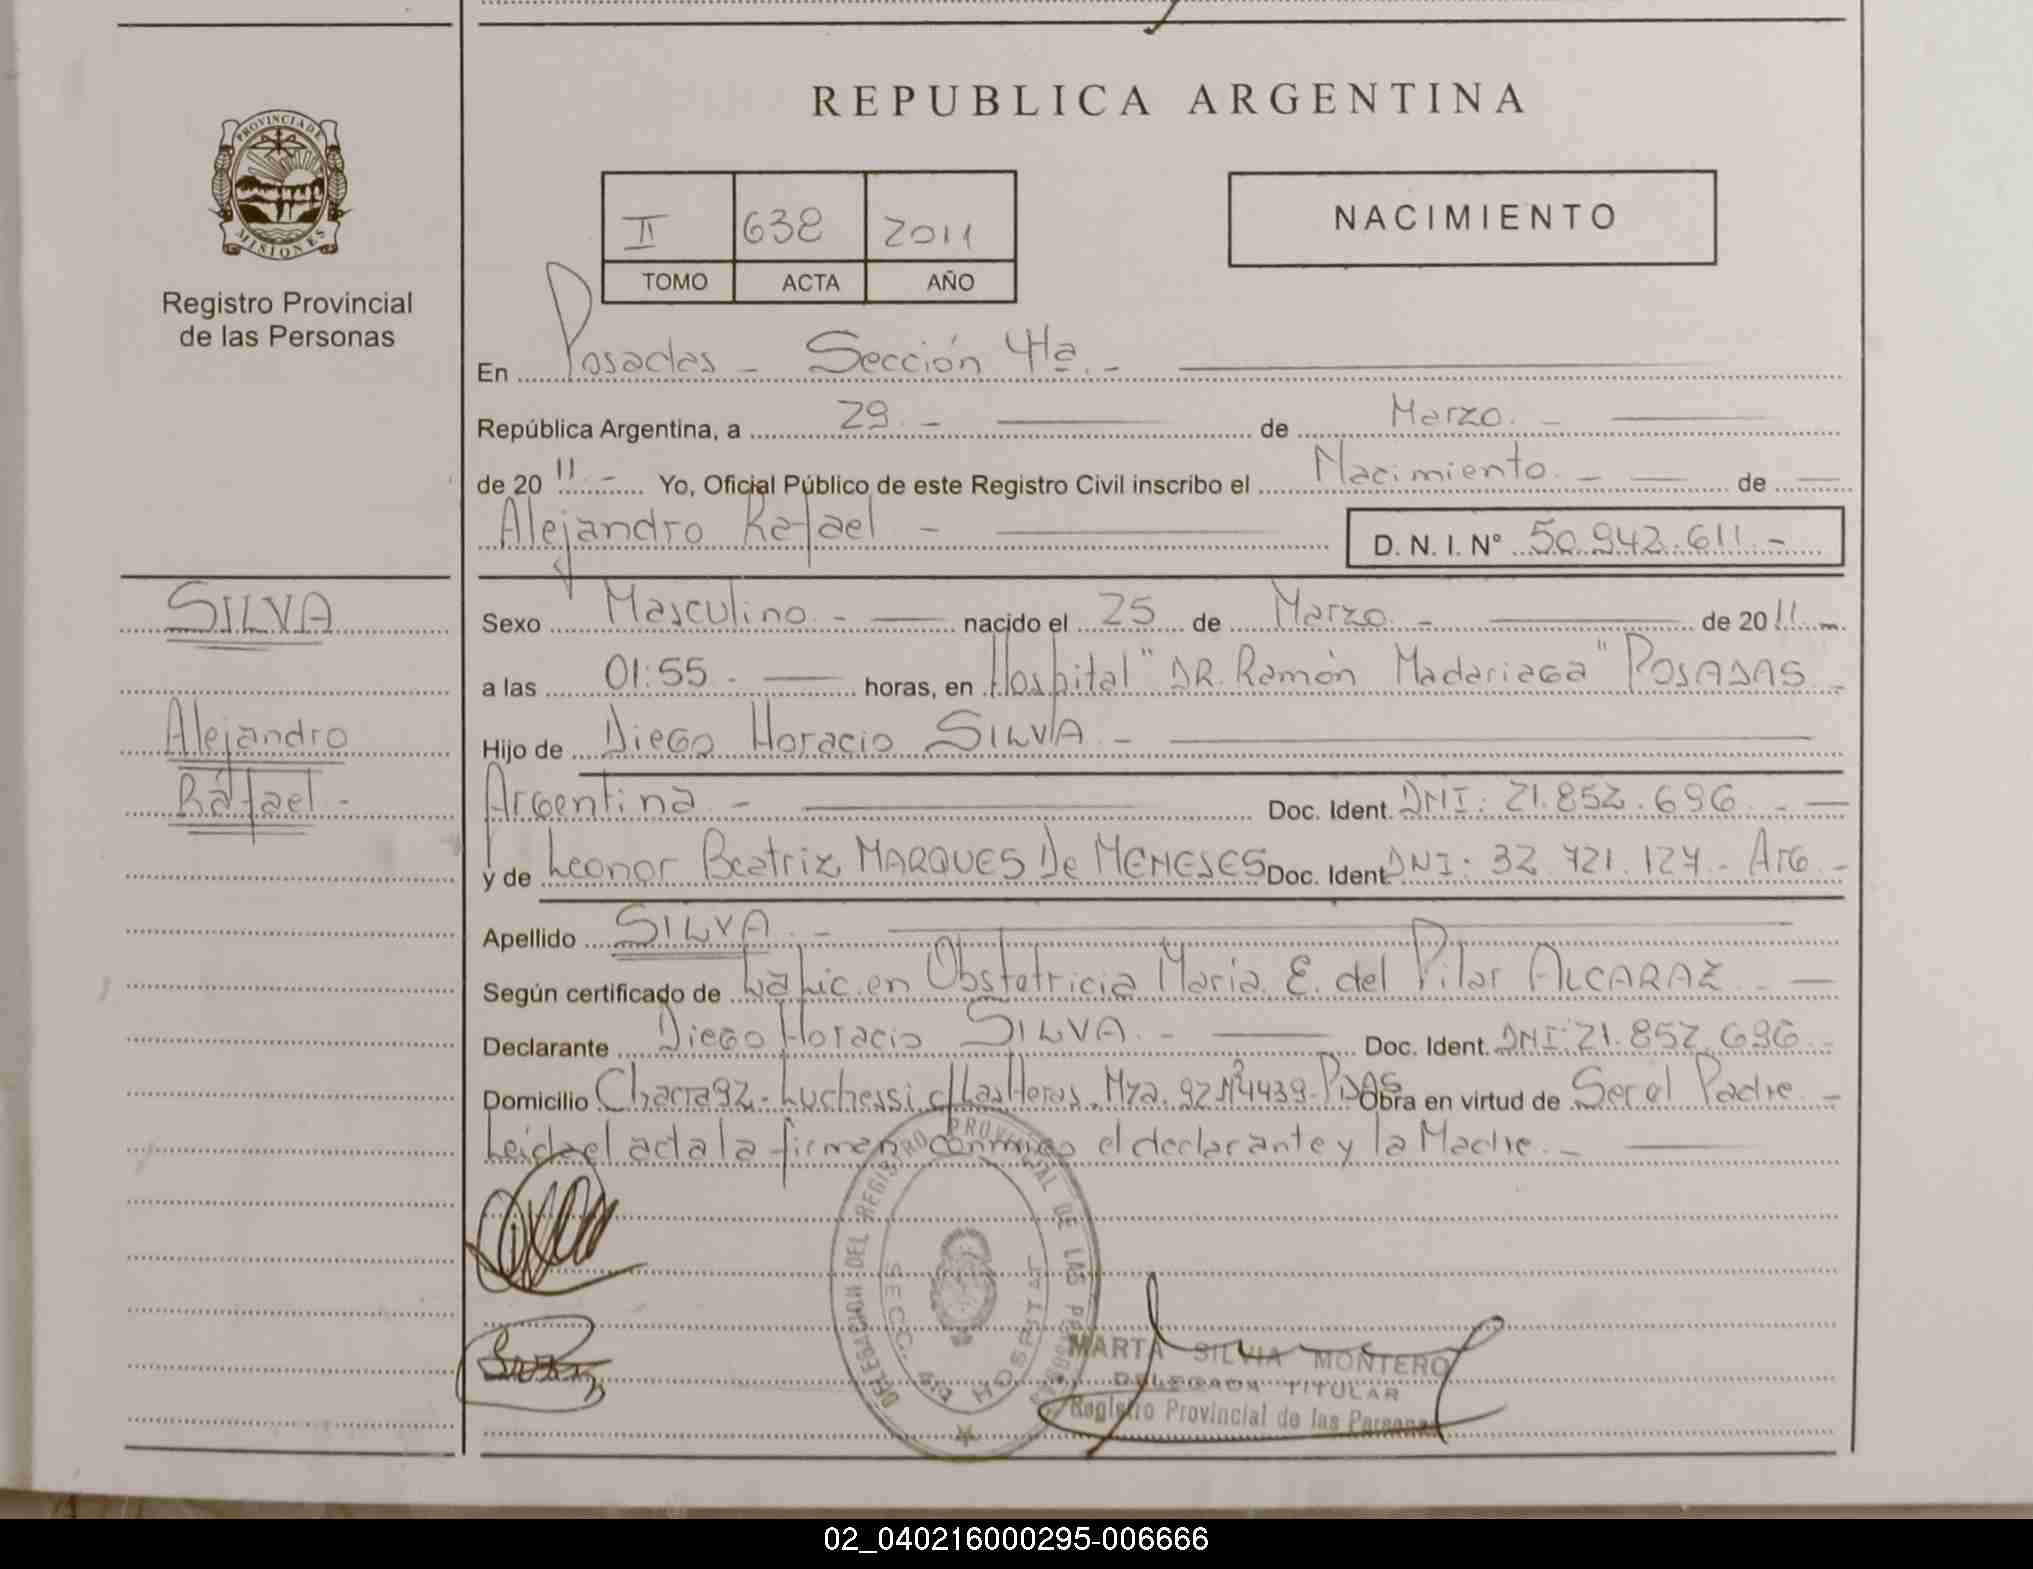 REPUBLICA ARGENTINA
PROVINCIA DE MISIONES
Registro Provincial
de las Personas
II 638 2011
TOMO ACTA AÑO
NACIMIENTO
En Posadas - Sección 4ta.-
República Argentina, a 29.- de Marzo.-
de 20 11.- Yo, Oficial Público de este Registro Civil inscribo el Nacimiento.- de
Alejandro Rafael - D. N. I. N° 50.942.611.-
SILVA
Alejandro
Rafael -
Sexo Masculino.- nacido el 25 de Marzo.- de 20 11
a las 01:55.- horas, en Hospital "DR. Ramón Madariaga" POSADAS -
Hijo de Diego Horacio SILVA.-
Argentina.- Doc. Ident. DNI: 21.852.696.-
y de Leonor Beatriz MARQUES De MENESES Doc. Ident DNI: 32.421.124.- Arg.-
Apellido SILVA.-
Según certificado de La Lic. en Obstetricia María E. del Pilar ALCARAZ.-
Declarante Diego Horacio SILVA.- Doc. Ident. DNI: 21.852.696.-
Domicilio Chacra 92- Luchessi c/ Las Heras. Mza. 92 Nº 4439- PDAS Obra en virtud de Ser el Padre.-
Leida el acta la firman conmigo el declarante y la Madre.-
DELEGACION DEL REGISTRO PROVINCIAL DE LAS PERSONAS
SECC. 4ta HOSPITAL
MARTA SILVIA MONTERO
DELEGADA TITULAR
Registro Provincial de las Personas
02_040216000295-006666